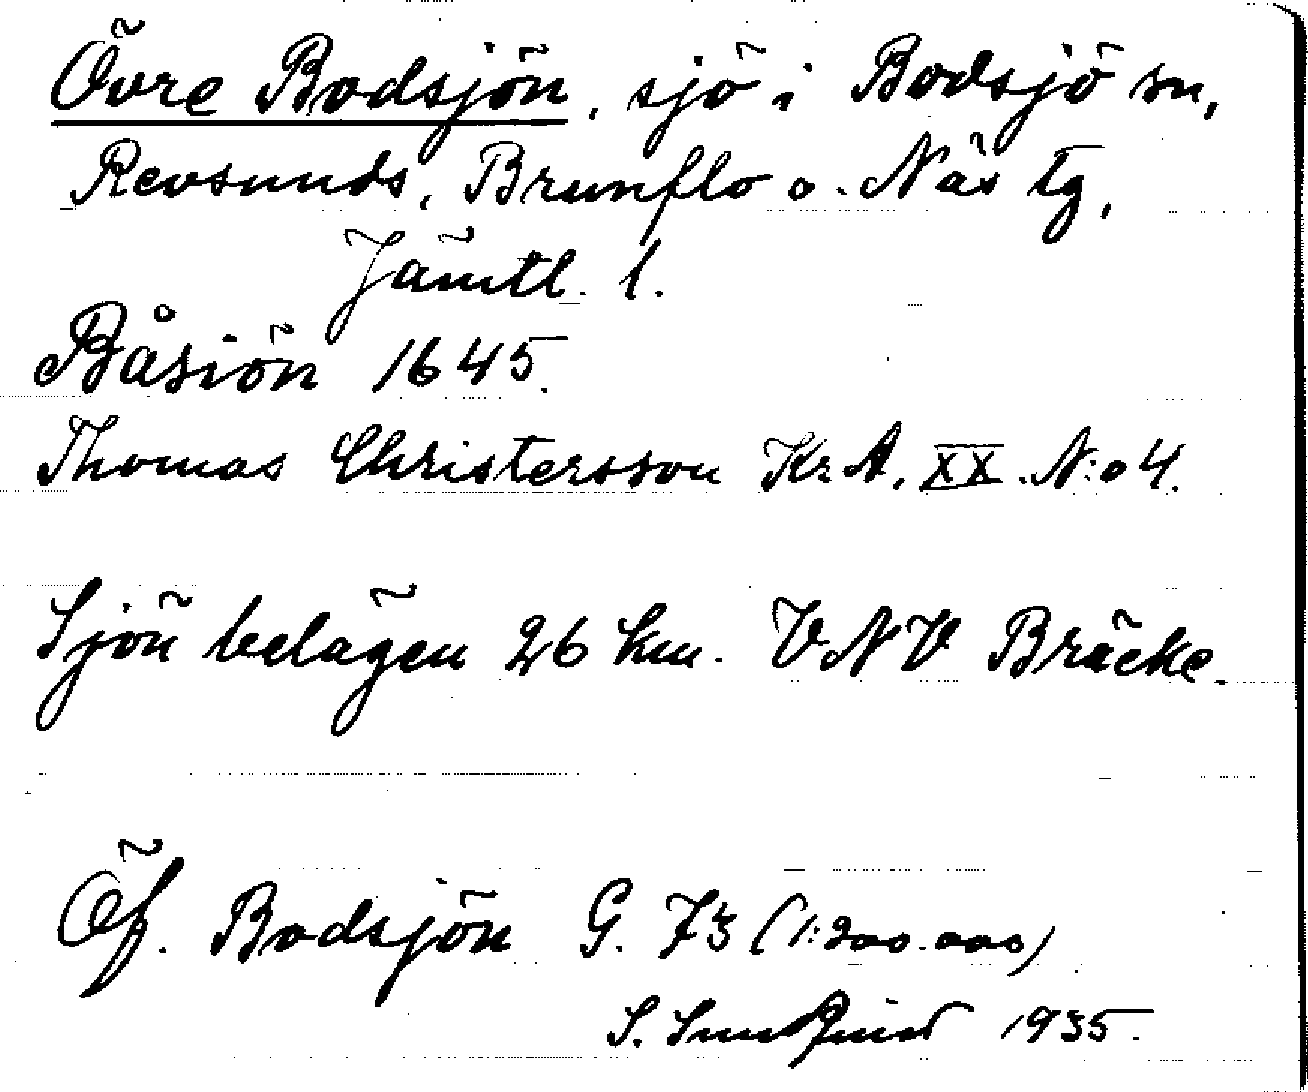 Övre Bodsjön, sjö i Bodsjö sn,
Revsunds, Brunflo o. Näs tg,
Jämtl. l.
Båsiön 1645.
Thomas Christersson Kr.A. XX. N:o 4.
Sjön belägen 26 km. VNV Bräcke.
Öf. Bodsjön G. 73 (1:200.000)
S. 1935.